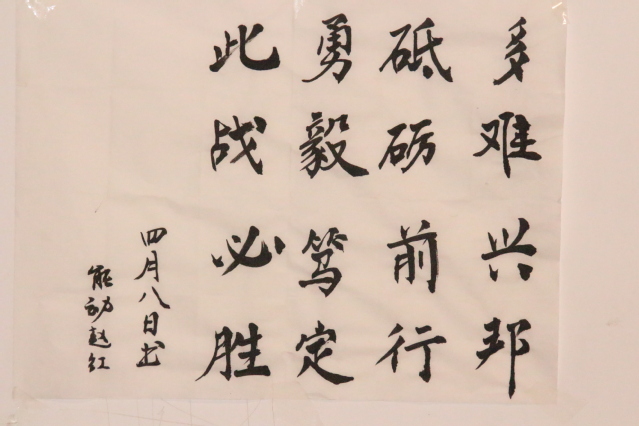 多难兴邦
砥砺前行
勇毅笃定
此战必胜
四月八日书
能动赵红